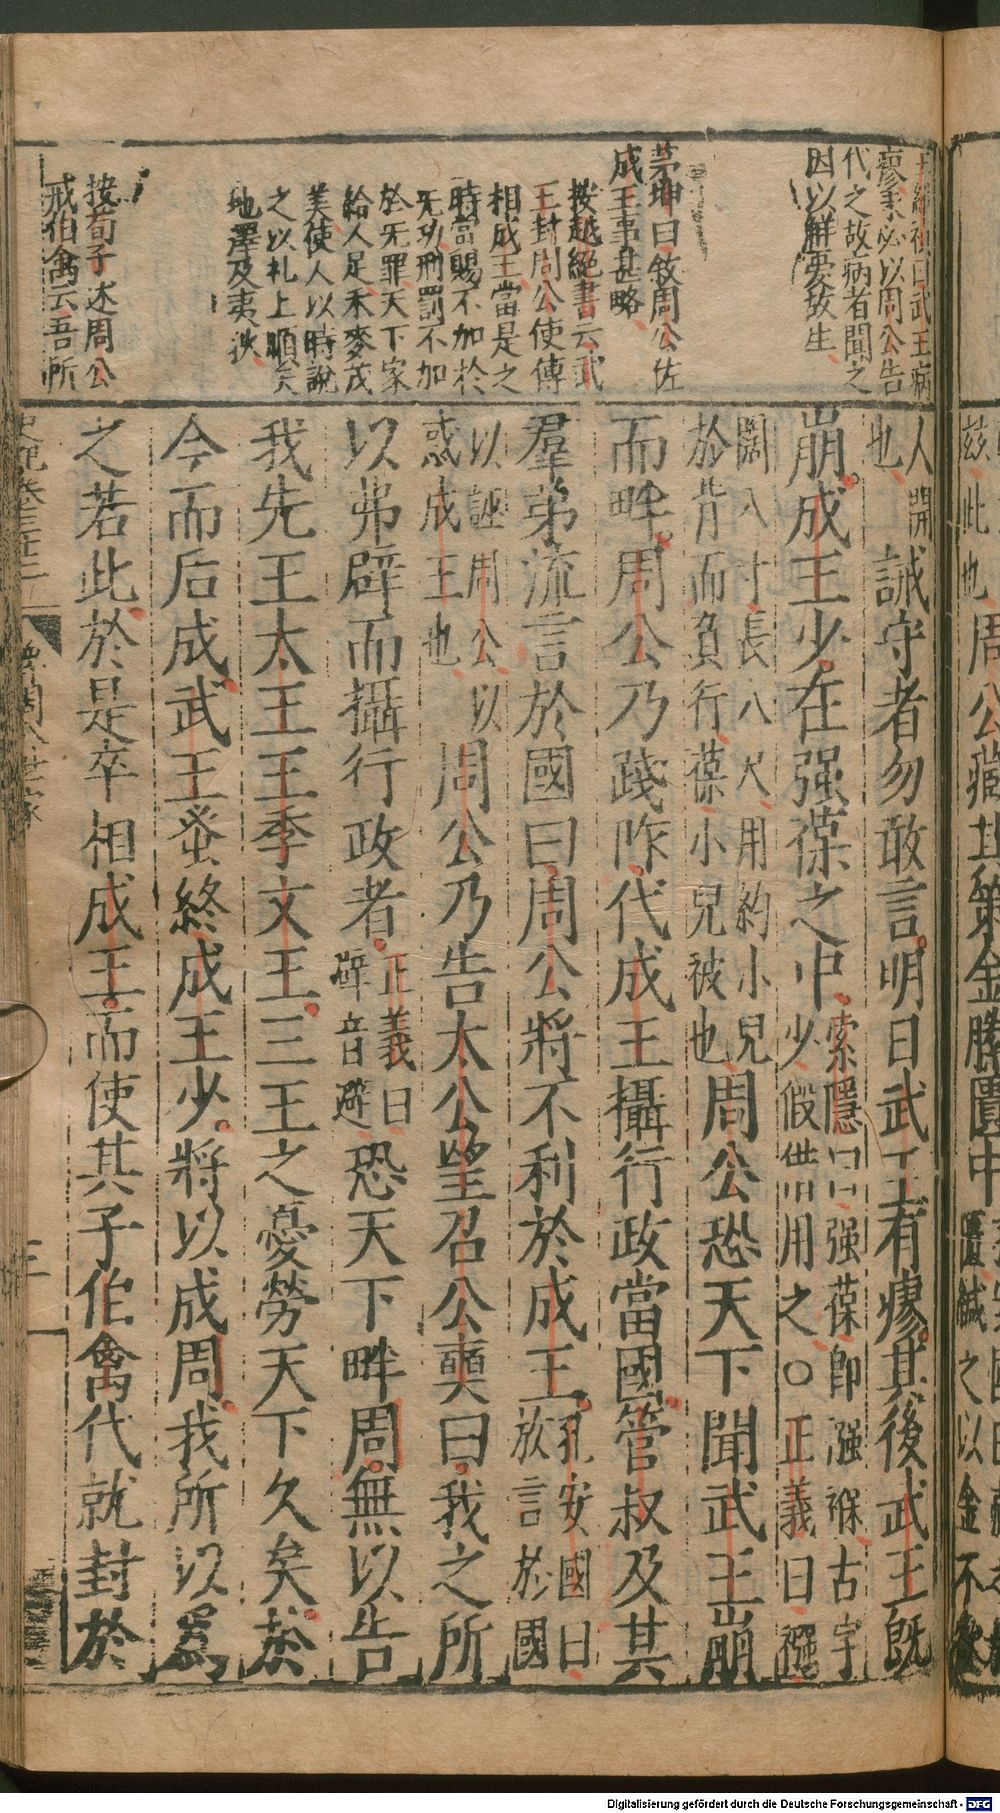 武王病
瘳未必以周公告
代之故病者聞之
因以鮮憂故生
茅坤曰敘周公佐
成王事甚略
按越絕書云武
王封周公使傅
相成王當是之
時當賜不加於
无功刑罰不加
於无罪天下家
給人足禾麥茂
美使人以時說
之以礼上順天
地澤及夷狄
按荀子述周公
戒伯禽云吾所
茲此也周公藏其策金縢匱中
匱緘之以金不欲
人開
也誡守者勿敢言明日武王有瘳其後武王既
崩成王少在强葆之中
索隱曰强葆即繈褓古字
少假借用之○正義曰繈
闊八寸長八尺用約小兒
於背而負行葆小兒被也
周公恐天下聞武王崩
而畔周公乃踐阼代成王攝行政當國管叔及其
羣弟流言於國曰周公將不利於成王
孔安國曰
放言於國
以誣周公以
惑成王也
周公乃告太公望召公奭曰我之所
以弗辟而攝行政者
正義曰
辟音避
恐天下畔周無以告
我先王太王王季文王三王之憂勞天下久矣於
今而后成武王蚤終成王少將以成周我所以爲
之若此於是卒相成王而使其子伯禽代就封於
史記卷三十三
魯周公世家
三
Digitalisierung gefördert durch die Deutsche Forschungsgemeinschaft - DFG